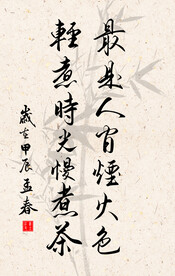 最是人间煙火色
輕煮時光慢煮茶
歲在甲辰孟春